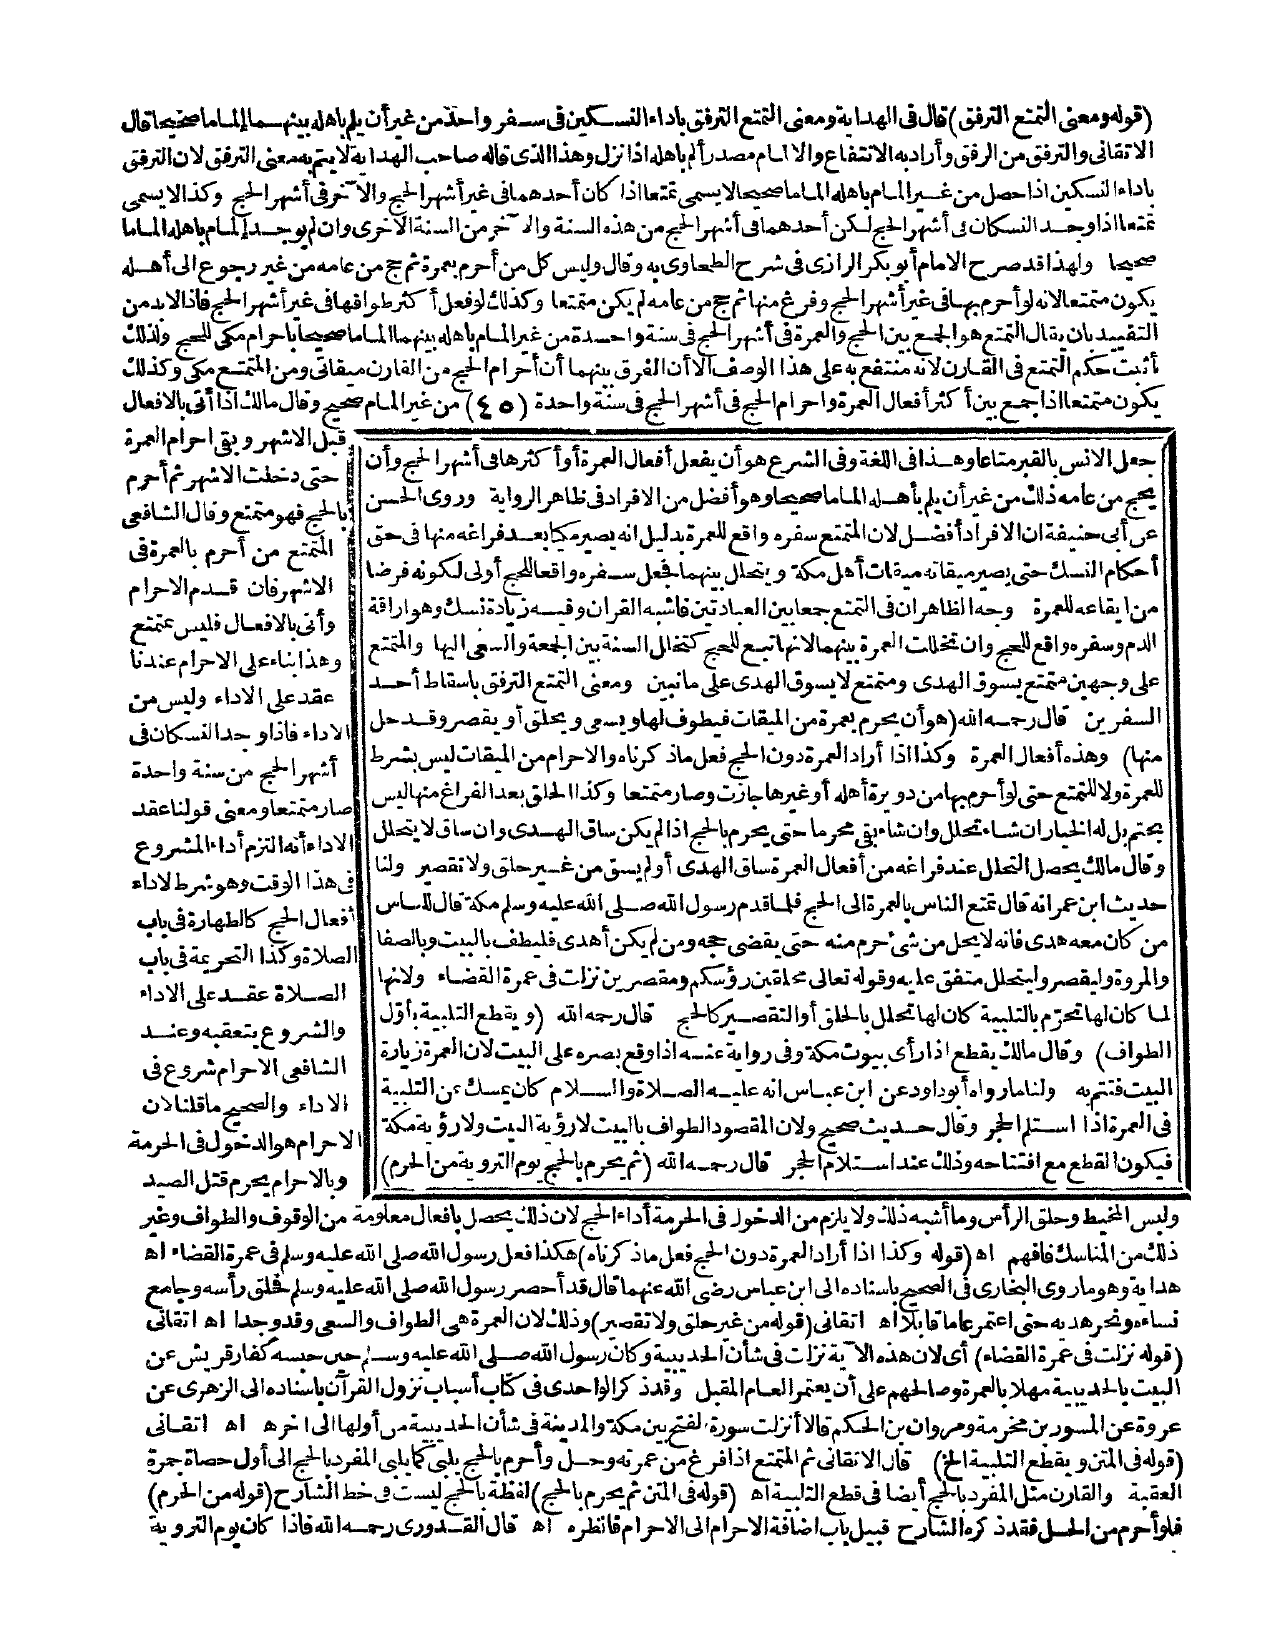 (قوله ومعنى التمتع الترفق) قال فى الهداية ومعنى التمتع الترفق باداء النسكين فى سفر واحد من غير أن يلم باهله بينهما إلماما صحيحا قال
الاتقانى والترفق من الرفق وأراد به الانتفاع والالمام مصدر ألم باهله اذا نزل وهذا الذى قاله صاحب الهداية لا يتم به معنى الترفق لان الترفق
باداء النسكين اذا حصل من غير المام باهله الماما صحيحا لا يسمى تمتعا اذا كان أحدهما فى غير أشهر الحج والآخر فى أشهر الحج وكذا لا يسمى
تمتعا اذا وجد النسكان فى أشهر الحج لكن أحدهما فى أشهر الحج من هذه السنة والآخر من السنة الأخرى وان لم يوجد إلمام باهله الماما
صحيحا ولهذا قد صرح الامام أبو بكر الرازى فى شرح الطحاوى به وقال وليس كل من أحرم بعمرة ثم حج من عامه من غير رجوع الى أهله
يكون متمتعا لانه لو أحرم بها فى غير أشهر الحج وفرغ منها ثم حج من عامه لم يكن متمتعا وكذلك لو فعل أكثر طوافها فى غير أشهر الحج فاذا لابد من
التقييد بان يقال التمتع هو الجمع بين الحج والعمرة فى أشهر الحج فى سنة واحدة من غير المام باهله بينهما الماما صحيحا باحرام مكى للحج ولذلك
أثبت حكم التمتع فى القارن لانه منتفع به على هذا الوصف الا أن الفرق بينهما أن أحرام الحج من القارن ميقاتى ومن المتمتع مكى وكذلك
يكون متمتعا اذا جمع بين أكثر أفعال العمرة واحرام الحج فى أشهر الحج فى سنة واحدة (٤٥) من غير المام صحيح وقال مالك اذا أتى بالافعال
قبل الاشهر وبقى احرام العمرة
حتى دخلت الاشهر ثم أحرم
بالحج فهو متمتع وقال الشافعى
المتمتع من أحرم بالعمرة فى
الاشهر فان قدم الاحرام
وأتى بالافعال فليس بمتمتع
وهذا بناء على الاحرام عندنا
عقد على الاداء وليس من
الاداء فاذا وجد النسكان فى
أشهر الحج من سنة واحدة
صار متمتعا ومعنى قولنا عقد
الاداء أنه التزم أداء المشروع
فى هذا الوقت وهو شرط لاداء
أفعال الحج كالطهارة فى باب
الصلاة وكذا التحريمة فى باب
الصلاة عقد على الاداء
والشروع يتعقبه وعند
الشافعى الاحرام شروع فى
الاداء والصحيح ما قلنا لان
الاحرام هو الدخول فى الحرمة
وبالاحرام يحرم قتل الصيد
جعل الانس بالقبر متاعا وهذا فى اللغة وفى الشرع هو أن يفعل أفعال العمرة أو أكثرها فى أشهر الحج وأن
يحج من عامه ذلك من غير أن يلم بأهله الماما صحيحا وهو أفضل من الافراد فى ظاهر الرواية وروى الحسن
عن أبى حنيفة ان الافراد أفضل لان المتمتع سفره واقع للعمرة بدليل انه يصير مكيا بعد فراغه منها فى حق
أحكام النسك حتى يصير ميقاته ميقات أهل مكة ويتحلل بينهما فجعل سفره واقعا للحج أولى لكونه فرضا
من ايقاعه للعمرة وجه الظاهر ان فى التمتع جمعا بين العبادتين فاشبه القران وفيه زيادة نسك وهو اراقة
الدم وسفره واقع للحج وان تخللت العمرة بينهما لانها تبع للحج كتخلل السنة بين الجمعة والسعى اليها والمتمتع
على وجهين متمتع يسوق الهدى ومتمتع لا يسوق الهدى على ما نبين ومعنى التمتع الترفق باسقاط أحد
السفرين قال رحمه الله (هو أن يحرم بعمرة من الميقات فيطوف لها ويسعى ويحلق أو يقصر وقد حل
منها) وهذه أفعال العمرة وكذا اذا أراد العمرة دون الحج فعل ما ذكرناه والاحرام من الميقات ليس بشرط
للعمرة ولا للتمتع حتى لو أحرم بها من دويرة أهله أو غيرها جازت وصار متمتعا وكذا الحلق بعد الفراغ منها ليس
بحتم بل له الخيار ان شاء تحلل وان شاء بقى محرما حتى يحرم بالحج اذا لم يكن ساق الهدى وان ساق لا يتحلل
وقال مالك يحصل التحلل عند فراغه من أفعال العمرة ساق الهدى أو لم يسق من غير حلق ولا تقصير ولنا
حديث ابن عمر انه قال تمتع الناس بالعمرة الى الحج فلما قدم رسول الله صلى الله عليه وسلم مكة قال للناس
من كان معه هدى فانه لا يحل من شئ حرم منه حتى يقضى حجه ومن لم يكن أهدى فليطف بالبيت وبالصفا
والمروة وليقصر وليتحلل متفق عليه وقوله تعالى محلقين رؤسكم ومقصرين نزلت فى عمرة القضاء ولانها
لما كان لها تحرم بالتلبية كان لها تحلل بالحلق أو التقصير كالحج قال رحمه الله (ويقطع التلبية بأول
الطواف) وقال مالك يقطع اذا رأى بيوت مكة وفى رواية عنه اذا وقع بصره على البيت لان العمرة زيارة
البيت فتتم به ولنا ما رواه أبو داود عن ابن عباس انه عليه الصلاة والسلام كان يمسك عن التلبية
فى العمرة اذا استلم الحجر وقال حديث صحيح ولان المقصود الطواف بالبيت لا رؤية البيت ولا رؤية مكة
فيكون القطع مع افتتاحه وذلك عند استلام الحجر قال رحمه الله (ثم يحرم بالحج يوم التروية من الحرم)
وليس المخيط وحلق الرأس وما أشبه ذلك ولا يلزم من الدخول فى الحرمة أداء الحج لان ذلك يحصل بافعال معلومة من الوقوف والطواف وغير
ذلك من المناسك فافهم اه (قوله وكذا اذا أراد العمرة دون الحج فعل ما ذكرناه) هكذا فعل رسول الله صلى الله عليه وسلم فى عمرة القضاء اه
هداية وهو ما روى البخارى فى الصحيح باسناده الى ابن عباس رضى الله عنهما قال قد أحصر رسول الله صلى الله عليه وسلم فحلق رأسه وجامع
نساءه ونحر هديه حتى اعتمر عاما قابلا اه اتقانى (قوله من غير حلق ولا تقصير) وذلك لان العمرة هى الطواف والسعى وقد وجدا اه اتقانى
(قوله نزلت فى عمرة القضاء) أى لان هذه الآية نزلت فى شأن الحديبية وكان رسول الله صلى الله عليه وسلم حين حبسه كفار قريش عن
البيت بالحديبية مهلا بالعمرة وصالحهم على أن يعتمر العام المقبل وقد ذكر الواحدى فى كتاب أسباب نزول القرآن باسناده الى الزهرى عن
عروة عن المسور بن مخرمة ومروان بن الحكم قالا أنزلت سورة الفتح بين مكة والمدينة فى شأن الحديبية من أولها الى اخره اه اتقانى
(قوله فى المتن ويقطع التلبية الخ) قال الاتقانى ثم المتمتع اذا فرغ من عمرته وحل وأحرم بالحج يلبى كما يلبى المفرد بالحج الى أول حصاة جمرة
العقبة والقارن مثل المفرد بالحج أيضا فى قطع التلبية اه (قوله فى المتن ثم يحرم بالحج) لفظة بالحج ليست فى خط الشارح (قوله من الحرم)
فلو أحرم من الحل فقد ذكره الشارح قبيل باب اضافة الاحرام الى الاحرام فانظره اه قال القدورى رحمه الله فاذا كان يوم التروية